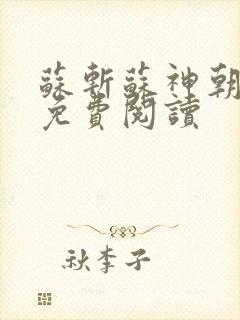 蘇斬蘇神朝
免費閱讀
秋李子